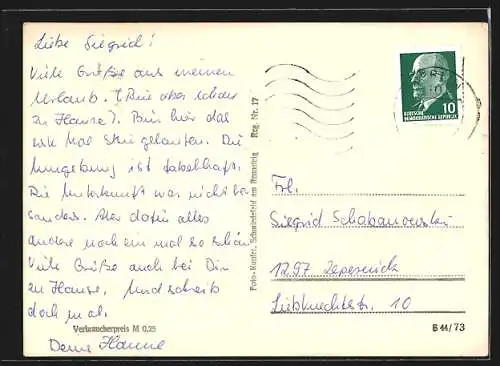 Liebe Siegrid!
Viele Grüße aus meinem
Urlaub. (Bin aber schon
zu Hause). Bin hier das
erste Mal Ski gelaufen. Die
Umgebung ist fabelhaft.
Die Unterkunft war nicht be-
sonders. Aber dafür alles
andere noch ein mal so schön
Viele Grüße auch bei Dir
zu Hause. Und schreib
doch mal.
Deine Hanne
Verbraucherpreis M 0,25
Reg. Nr. 17
10
DEUTSCHE
DEMOKRATISCHE REPUBLIK
Frl.
Siegrid Schabanowski
1297 Zepernick
Liebknechtstr. 10
B 44/73